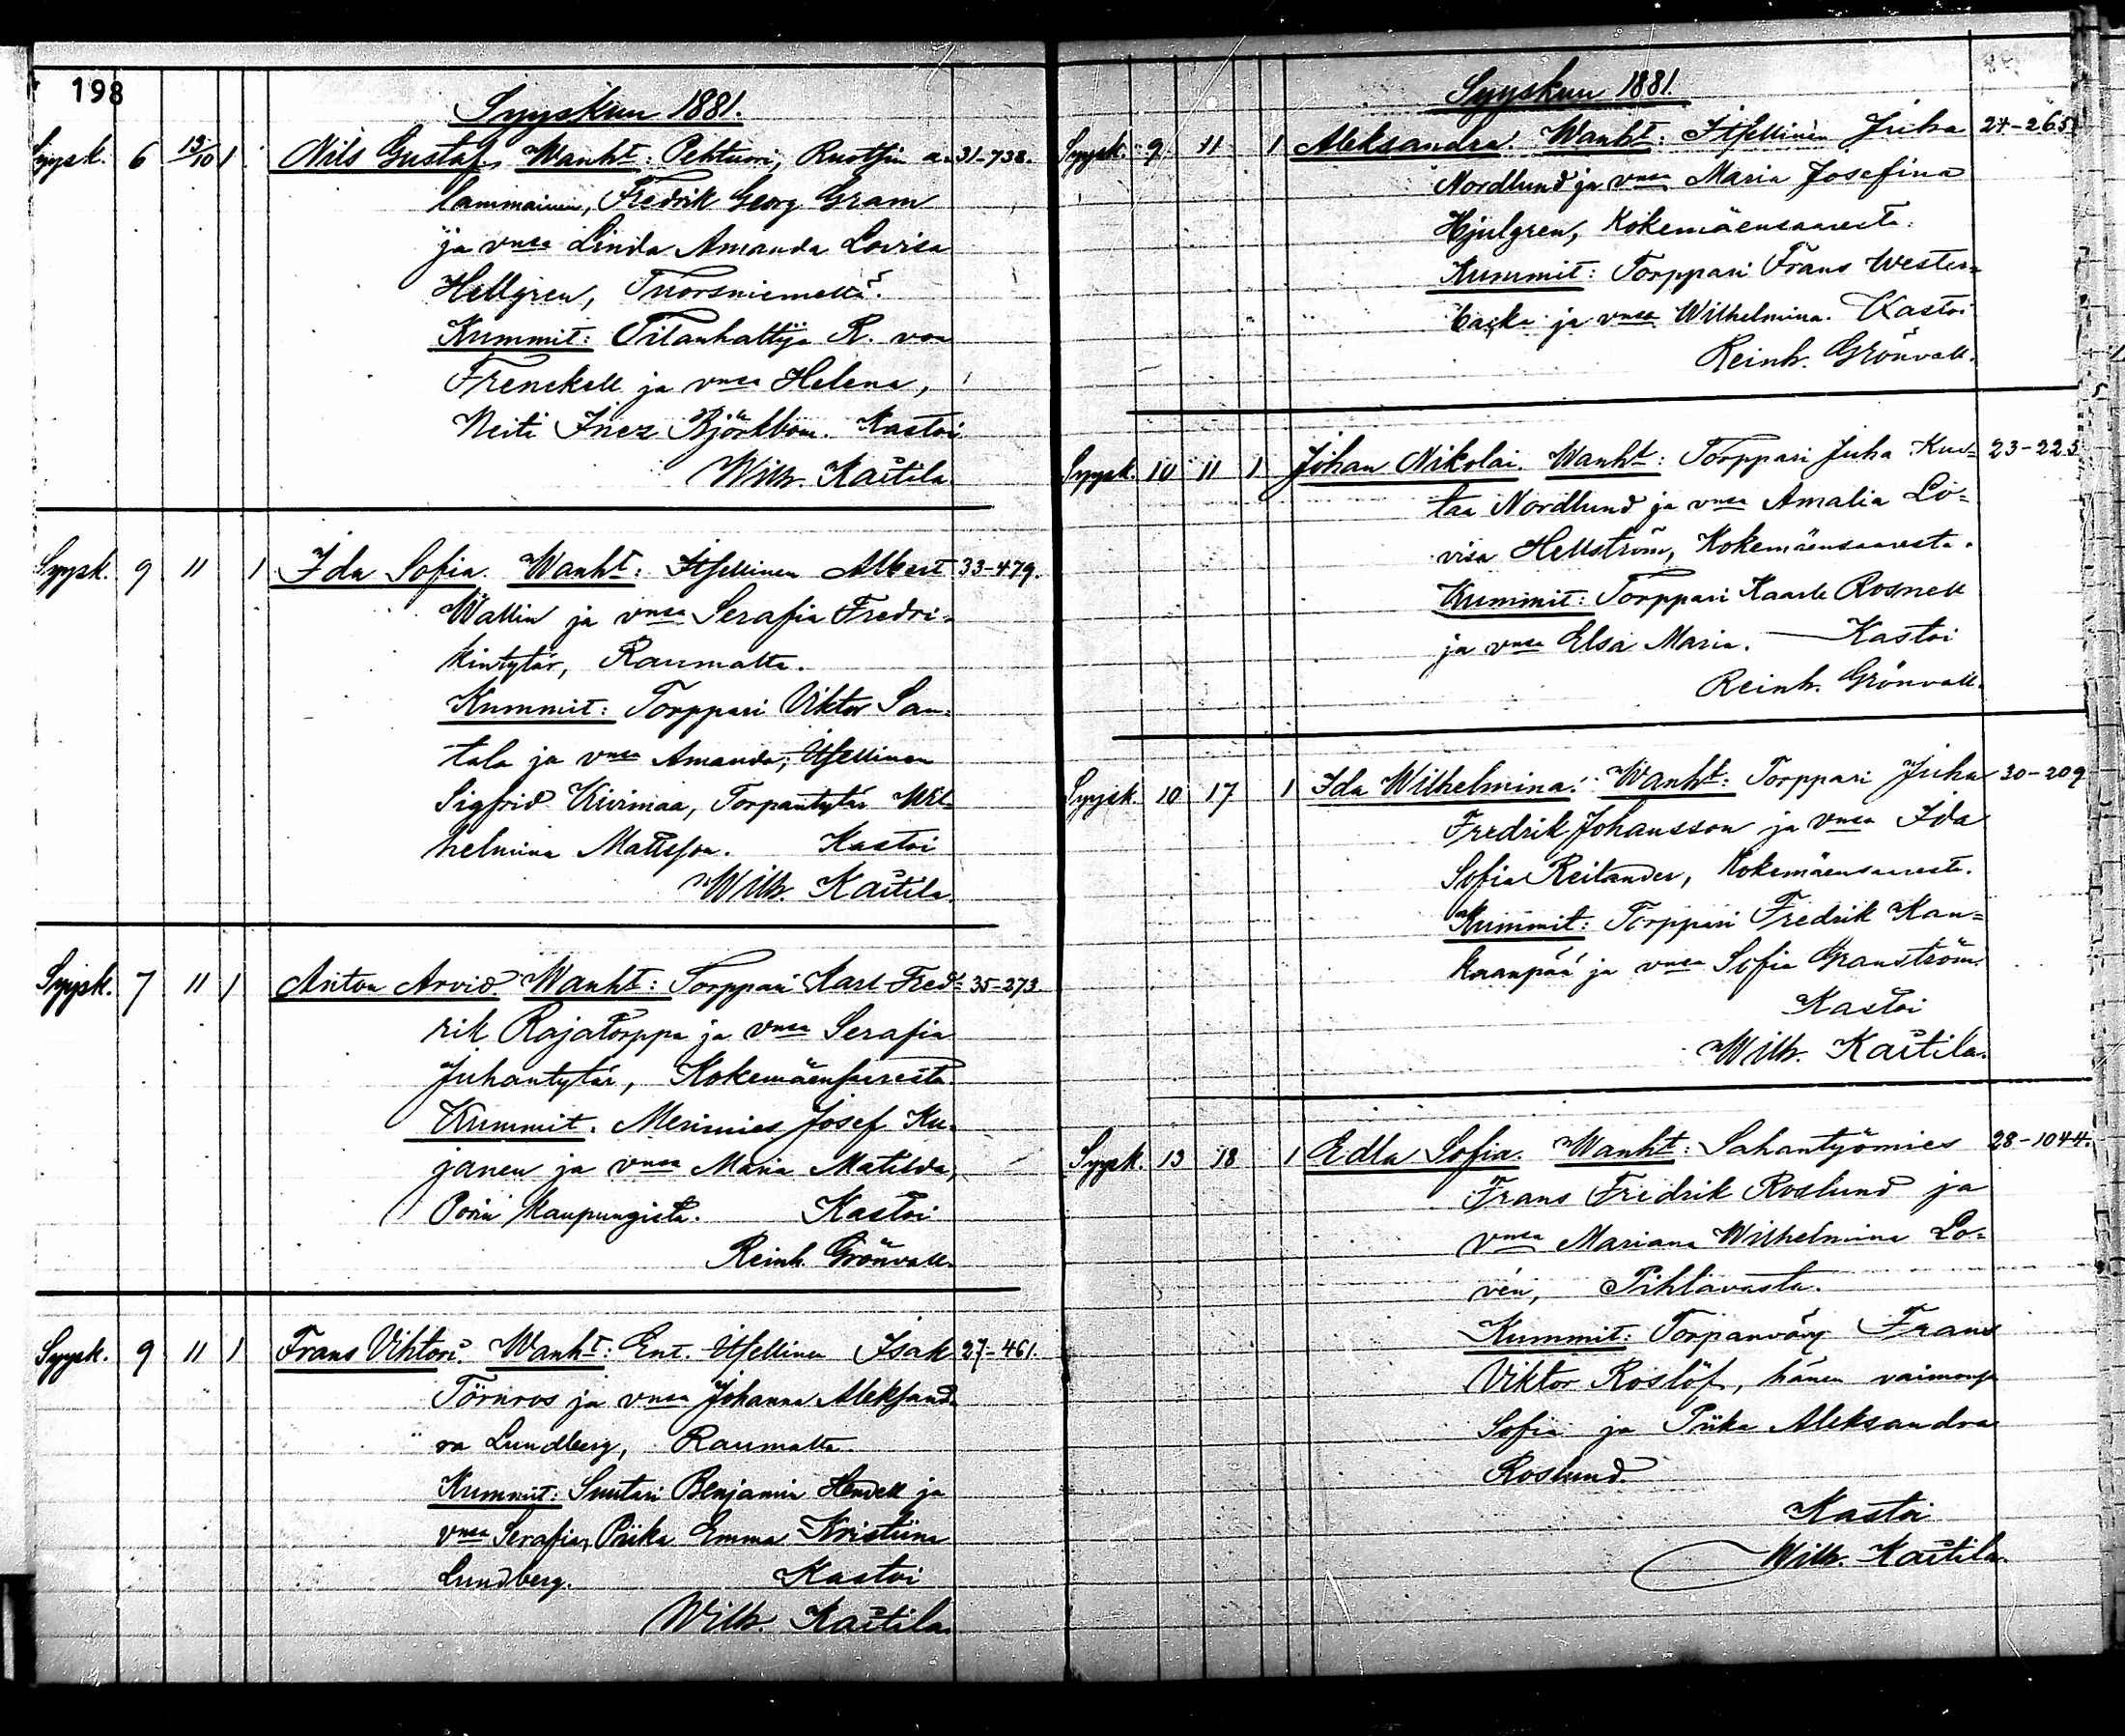 198
Syyskun 1881.
Syysk. 6 13/10 1 Nils Gustaf. Wanht: Pehtuori, Ruotsin a- 31-738.
lammainen, Fredrik Georg Gram
ja vnsa Linda Amanda Lovisa
Hellgren, Tuorsniemeltä.
Kummit: Tilanhaltija R. von
Frenckell ja vnsa Helena,
Neiti Inez Björkbom. Kastoi
Wilh. Kaitila.
Syysk. 9 11 1 Ida Sofia. Wanht: Itsellinen Albert 33-479.
Wallin ja vnsa Serafia Fredri-
kintytär, Raumalta.
Kummit: Torppari Viktor San-
tala ja vnsa Amanda, Itsellinen
Sigfrid Kivimaa, Torpantytär Wil-
helmina Mattsson. Kastoi
Wilh. Kaitila.
Syysk. 7 11 1 Anton Arvid. Wanht: Torppari Karl Fred- 35-273.
rik Rajatorppa ja vnsa Serafia
Juhantytär, Kokemäensaaresta.
Kummit. Merimies Josef Ku-
janen ja vnsa Maria Matilda,
Porin kaupungista. Kastoi
Reinh. Grönvall.
Syysk. 9 11 1 Frans Vihtori. Wanht: Ent. Itsellinen Isak 27-461.
Törnros ja vnsa Johanna Aleksand-
ra Lundberg, Raumalta.
Kummit: Suutari Benjamin ja
vnsa Serafia, Piika Emma Kristiina
Lundberg. Kastoi
Wilh. Kaitila.
Syyskun 1881.
Syysk. 9 11 1 Aleksandra. Wanht: Itsellinen Juha 24-265
Nordlund ja vnsa Maria Josefina
Hjulgren, Kokemäensaaresta.
Kummit: Torppari Frans Wester-
backa ja vnsa Wilhelmina. Kastoi
Reinh. Grönvall.
Syysk. 10 11 1 Johan Nikolai. Wanht: Torppari Juha Kus- 23-225
taa Nordlund ja vnsa Amalia Lo-
visa Hellström, Kokemäensaaresta.
Kummit: Torppari Kaarle Rosnell
ja vnsa Elsa Maria. Kastoi
Reinh. Grönvall.
Syysk. 10 17 1 Ida Wilhelmina. Wanht: Torppari Juha 30-209
Fredrik Johansson ja vnsa Ida
Sofia Reilander, Kokemäensaaresta.
Kummit: Torppari Fredrik Kan-
kaanpää ja vnsa Sofia Granström.
Kastoi
Wilh. Kaitila.
Syysk. 13 18 1 Edla Sofia. Wanht: Sahantyömies 28-1044.
Frans Fredrik Roslund ja
vnsa Mariana Wilhelmina Lo-
vén, Pihlavasta.
Kummit: Torpanvävy Frans
Viktor Roslöf, hänen vaimonsa
Sofia ja Piika Aleksandra
Roslund.
Kastoi
Wilh. Kaitila.